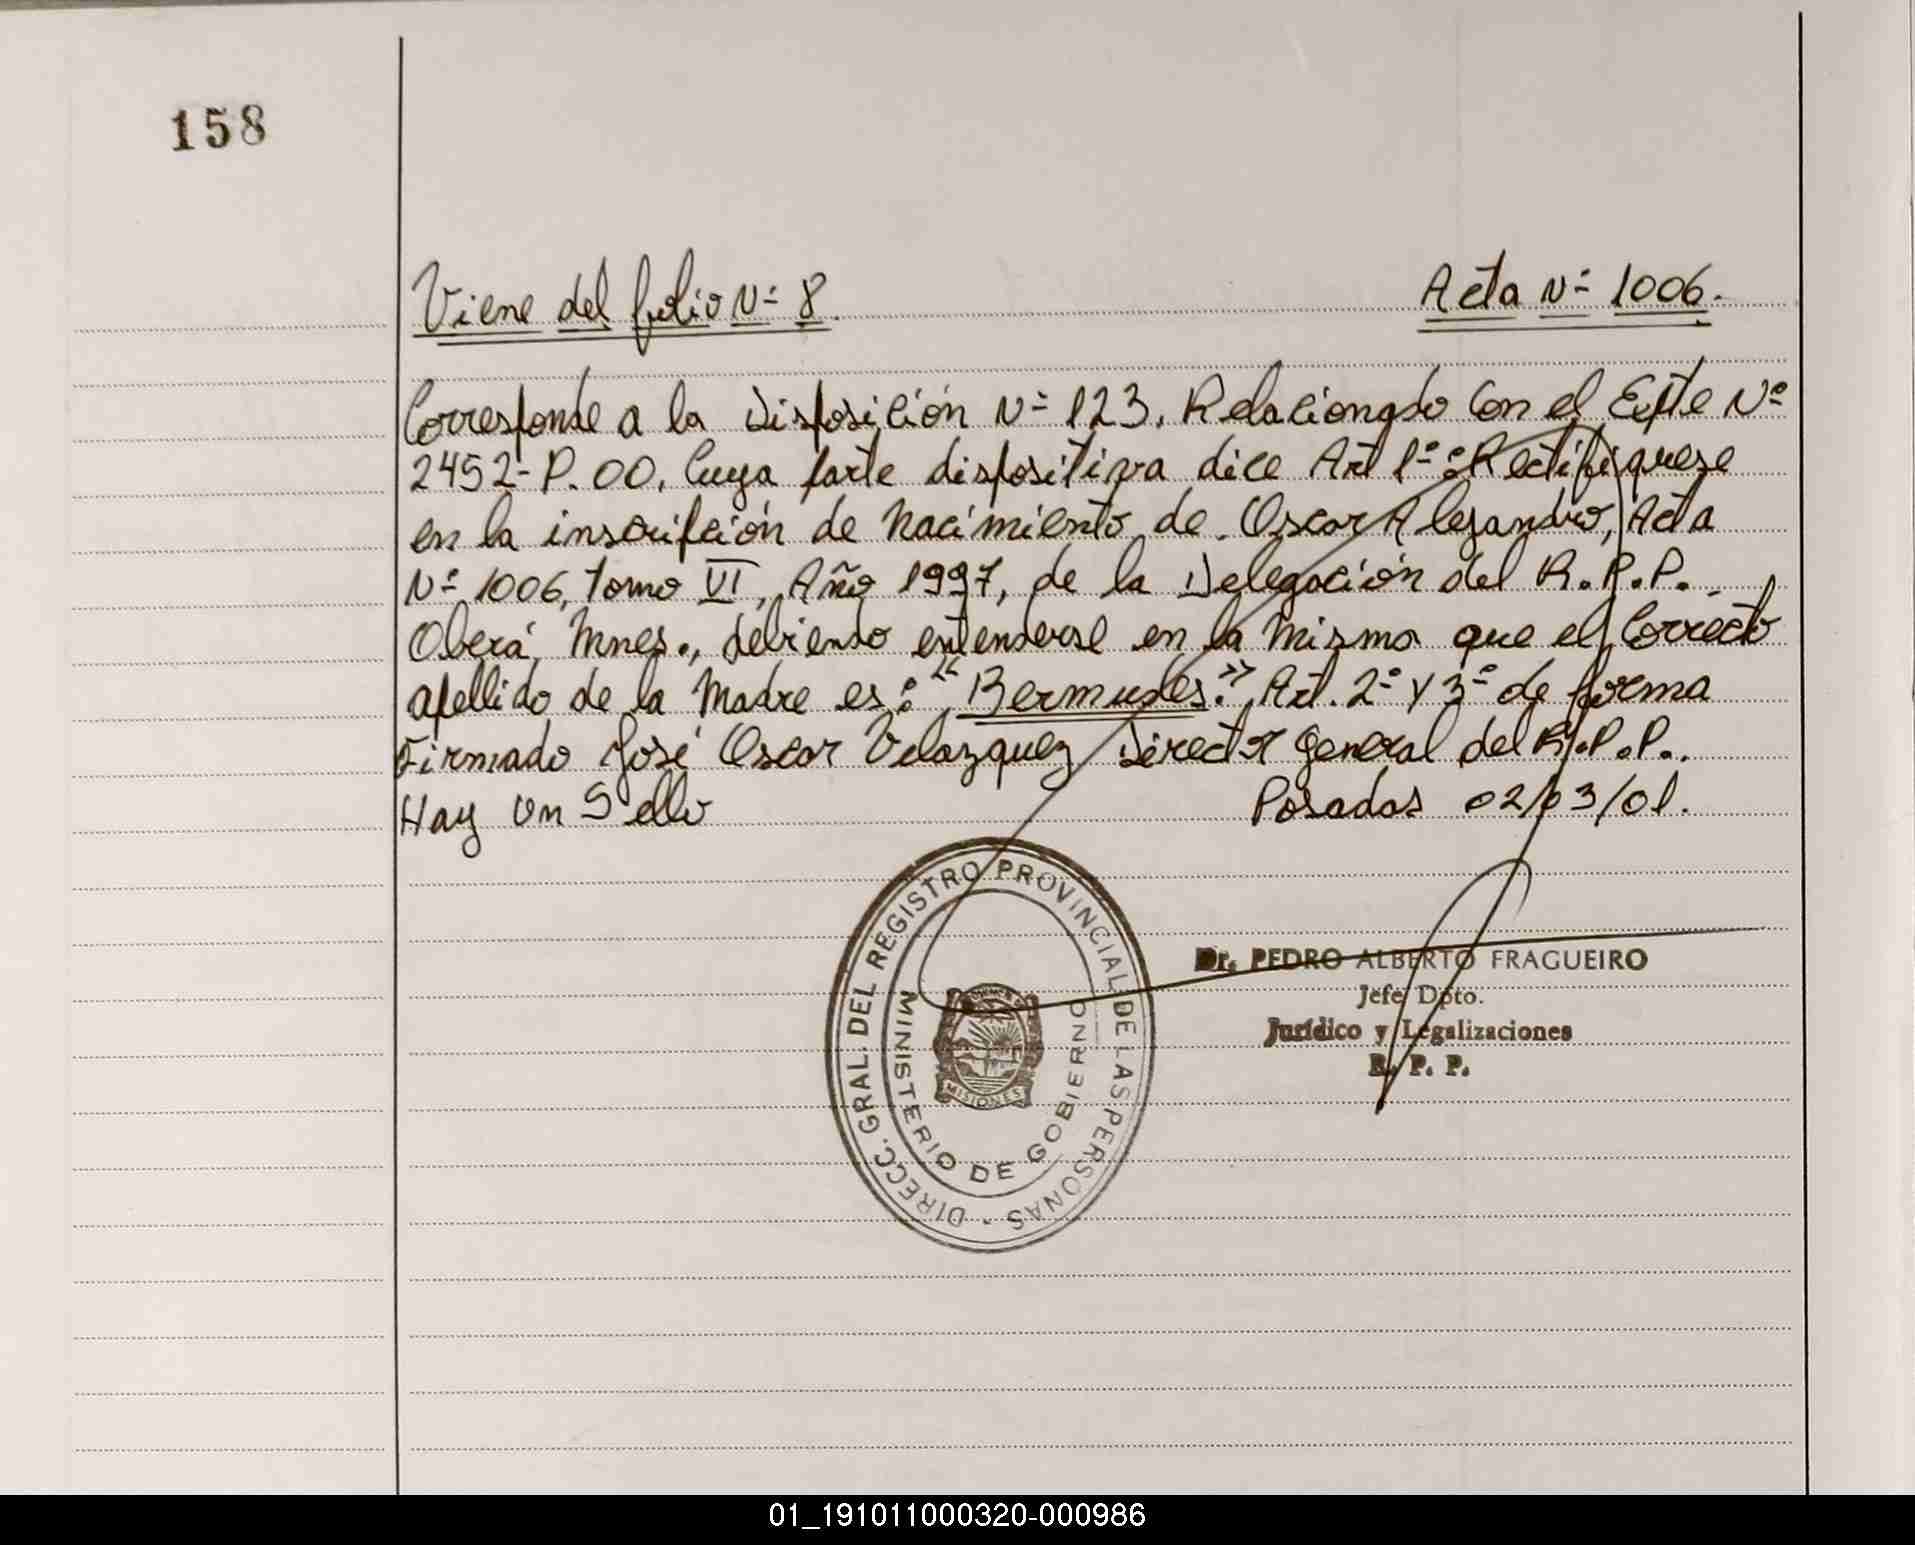 158
Viene del folio Nº 8.
Acta Nº 1006.
Corresponde a la Disposición Nº 123. Relacionado Con el Expte Nº
2452-P.00. Cuya parte dispositiva dice Art 1º: Rectifiquese
en la inscripción de Nacimiento de Oscar Alejandro, Acta
Nº 1006, Tomo VI, Año 1997, de la Delegación del R.P.P.
Oberá, Mnes., debiendo entenderse en la misma que el Correcto
apellido de la Madre es: "Bermudes". Art. 2º y 3º de forma
Firmado José Oscar Velazquez Director General del R.P.P..
Hay Un Sello
Posadas 02/03/01.
DIRECC. GRAL. DEL REGISTRO PROVINCIAL DE LAS PERSONAS -
MINISTERIO DE GOBIERNO
MISIONES
Dr. PEDRO ALBERTO FRAGUEIRO
Jefe Dpto.
Jurídico y Legalizaciones
R. P. P.
01_191011000320-000986